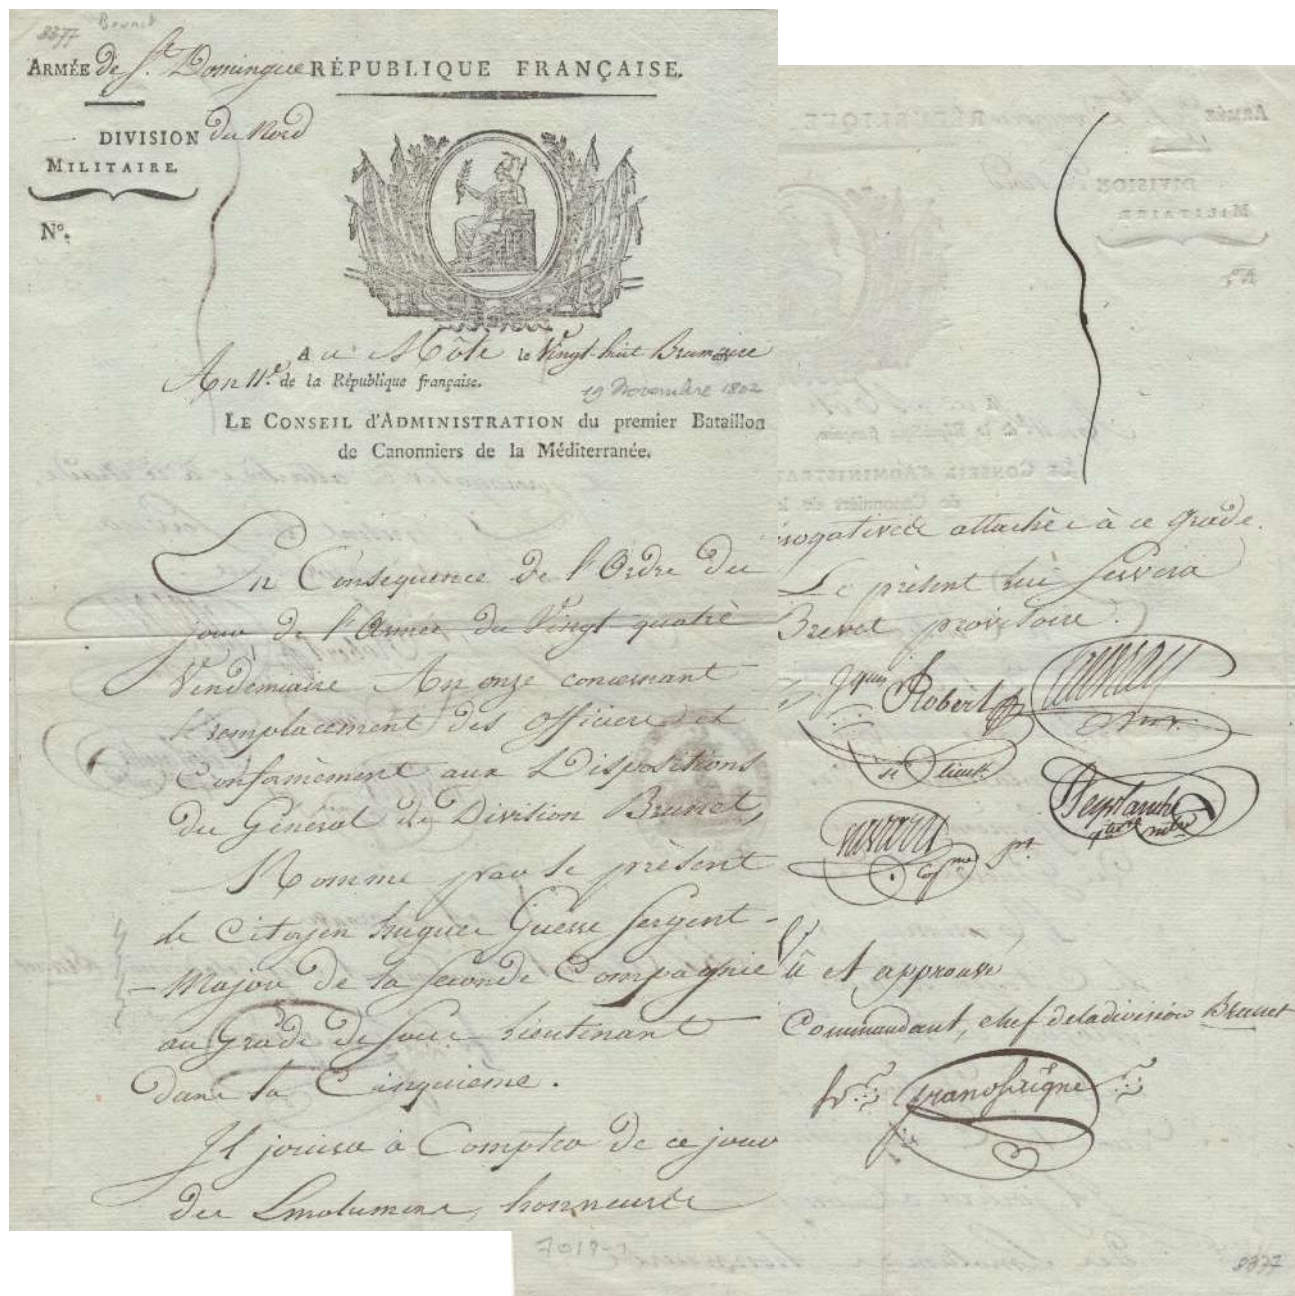 8377
Brunet
ARMÉE de St. Domingue RÉPUBLIQUE FRANÇAISE.
DIVISION du Nord
MILITAIRE.
N°.
A u Môle le Vingt huit Brumaire
An 11.e de la République française.
19 Novembre 1802
LE CONSEIL d'ADMINISTRATION du premier Bataillon
de Canonniers de la Méditerranée.
En Consequence de l'Ordre du
jour de l'Armée du Vingt quatre
Vendemiaire An onze concernant
Remplacement des officiers et
Conformément aux Dispositions
du Général de Division Brunet,
Nomme par le présent
le Citoyen hugues Guesse Sergent-
-Major de la Seconde Compagnie
au Grade de Sous Lieutenant
dans la Cinquième.
Il jouira à Compter de ce jour
des Emolumens, honneurs &
rogatives attachées à ce Grade.
Le présent lui Servira
Brevet provisoire.
Robert
s Lieut.
quer. mtre
Vû et approuvé
Commandant, chef de la division Brunet
7019-1
8377